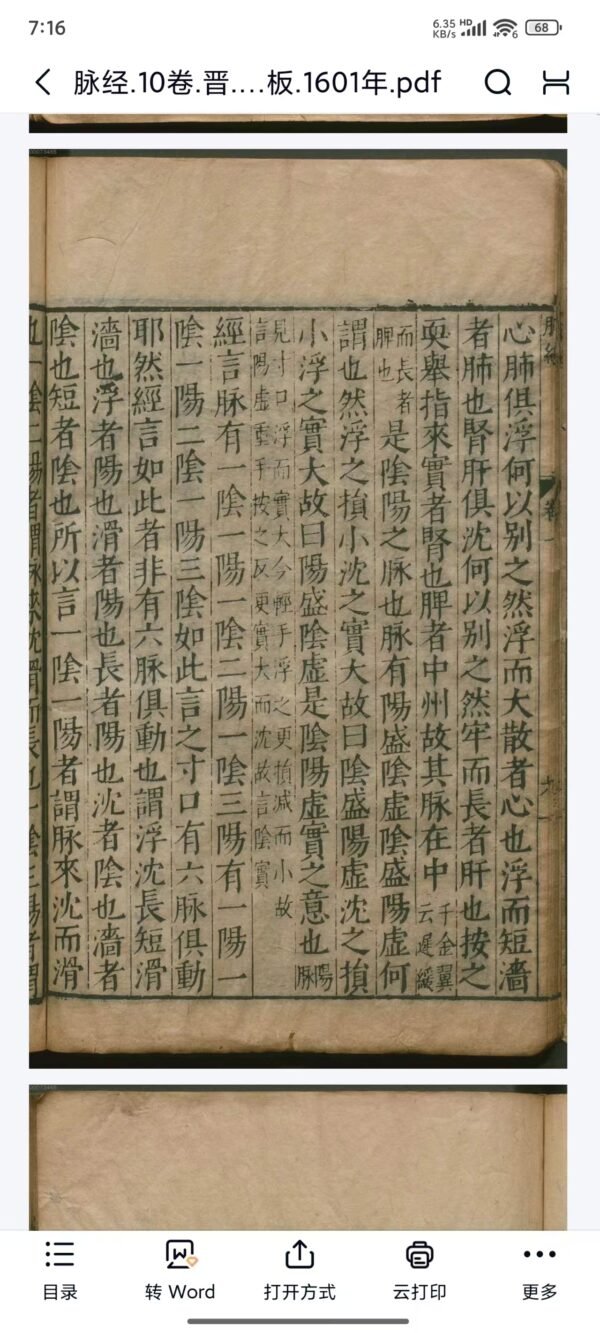 7:16
6.35 KB/s HD 6 68
脉经.10卷.晋....板.1601年.pdf
心肺俱浮何以别之然浮而大散者心也浮而短濇
者肺也腎肝俱沈何以别之然牢而長者肝也按之
耎舉指來實者腎也脾者中州故其脉在中千金翼云遲緩
而長者脾也是陰陽之脉也脉有陽盛陰虚陰盛陽虚何
謂也然浮之損小沈之實大故曰陰盛陽虚沈之損
小浮之實大故曰陽盛陰虚是陰陽虚實之意也陽脉
見寸口浮而實大今輕手浮之更損减而小故
言陽虚重手按之反更實大而沈故言陰實
經言脉有一陰一陽一陰二陽一陰三陽有一陽一
陰一陽二陰一陽三陰如此言之寸口有六脉俱動
耶然經言如此者非有六脉俱動也謂浮沈長短滑
濇也浮者陽也滑者陽也長者陽也沈者陰也濇者
陰也短者陰也所以言一陰一陽者謂脉來沈而滑
也一陰二陽者謂脉來沈滑而長也一陰三陽者謂
脉經
卷一
目录
转 Word
打开方式
云打印
更多